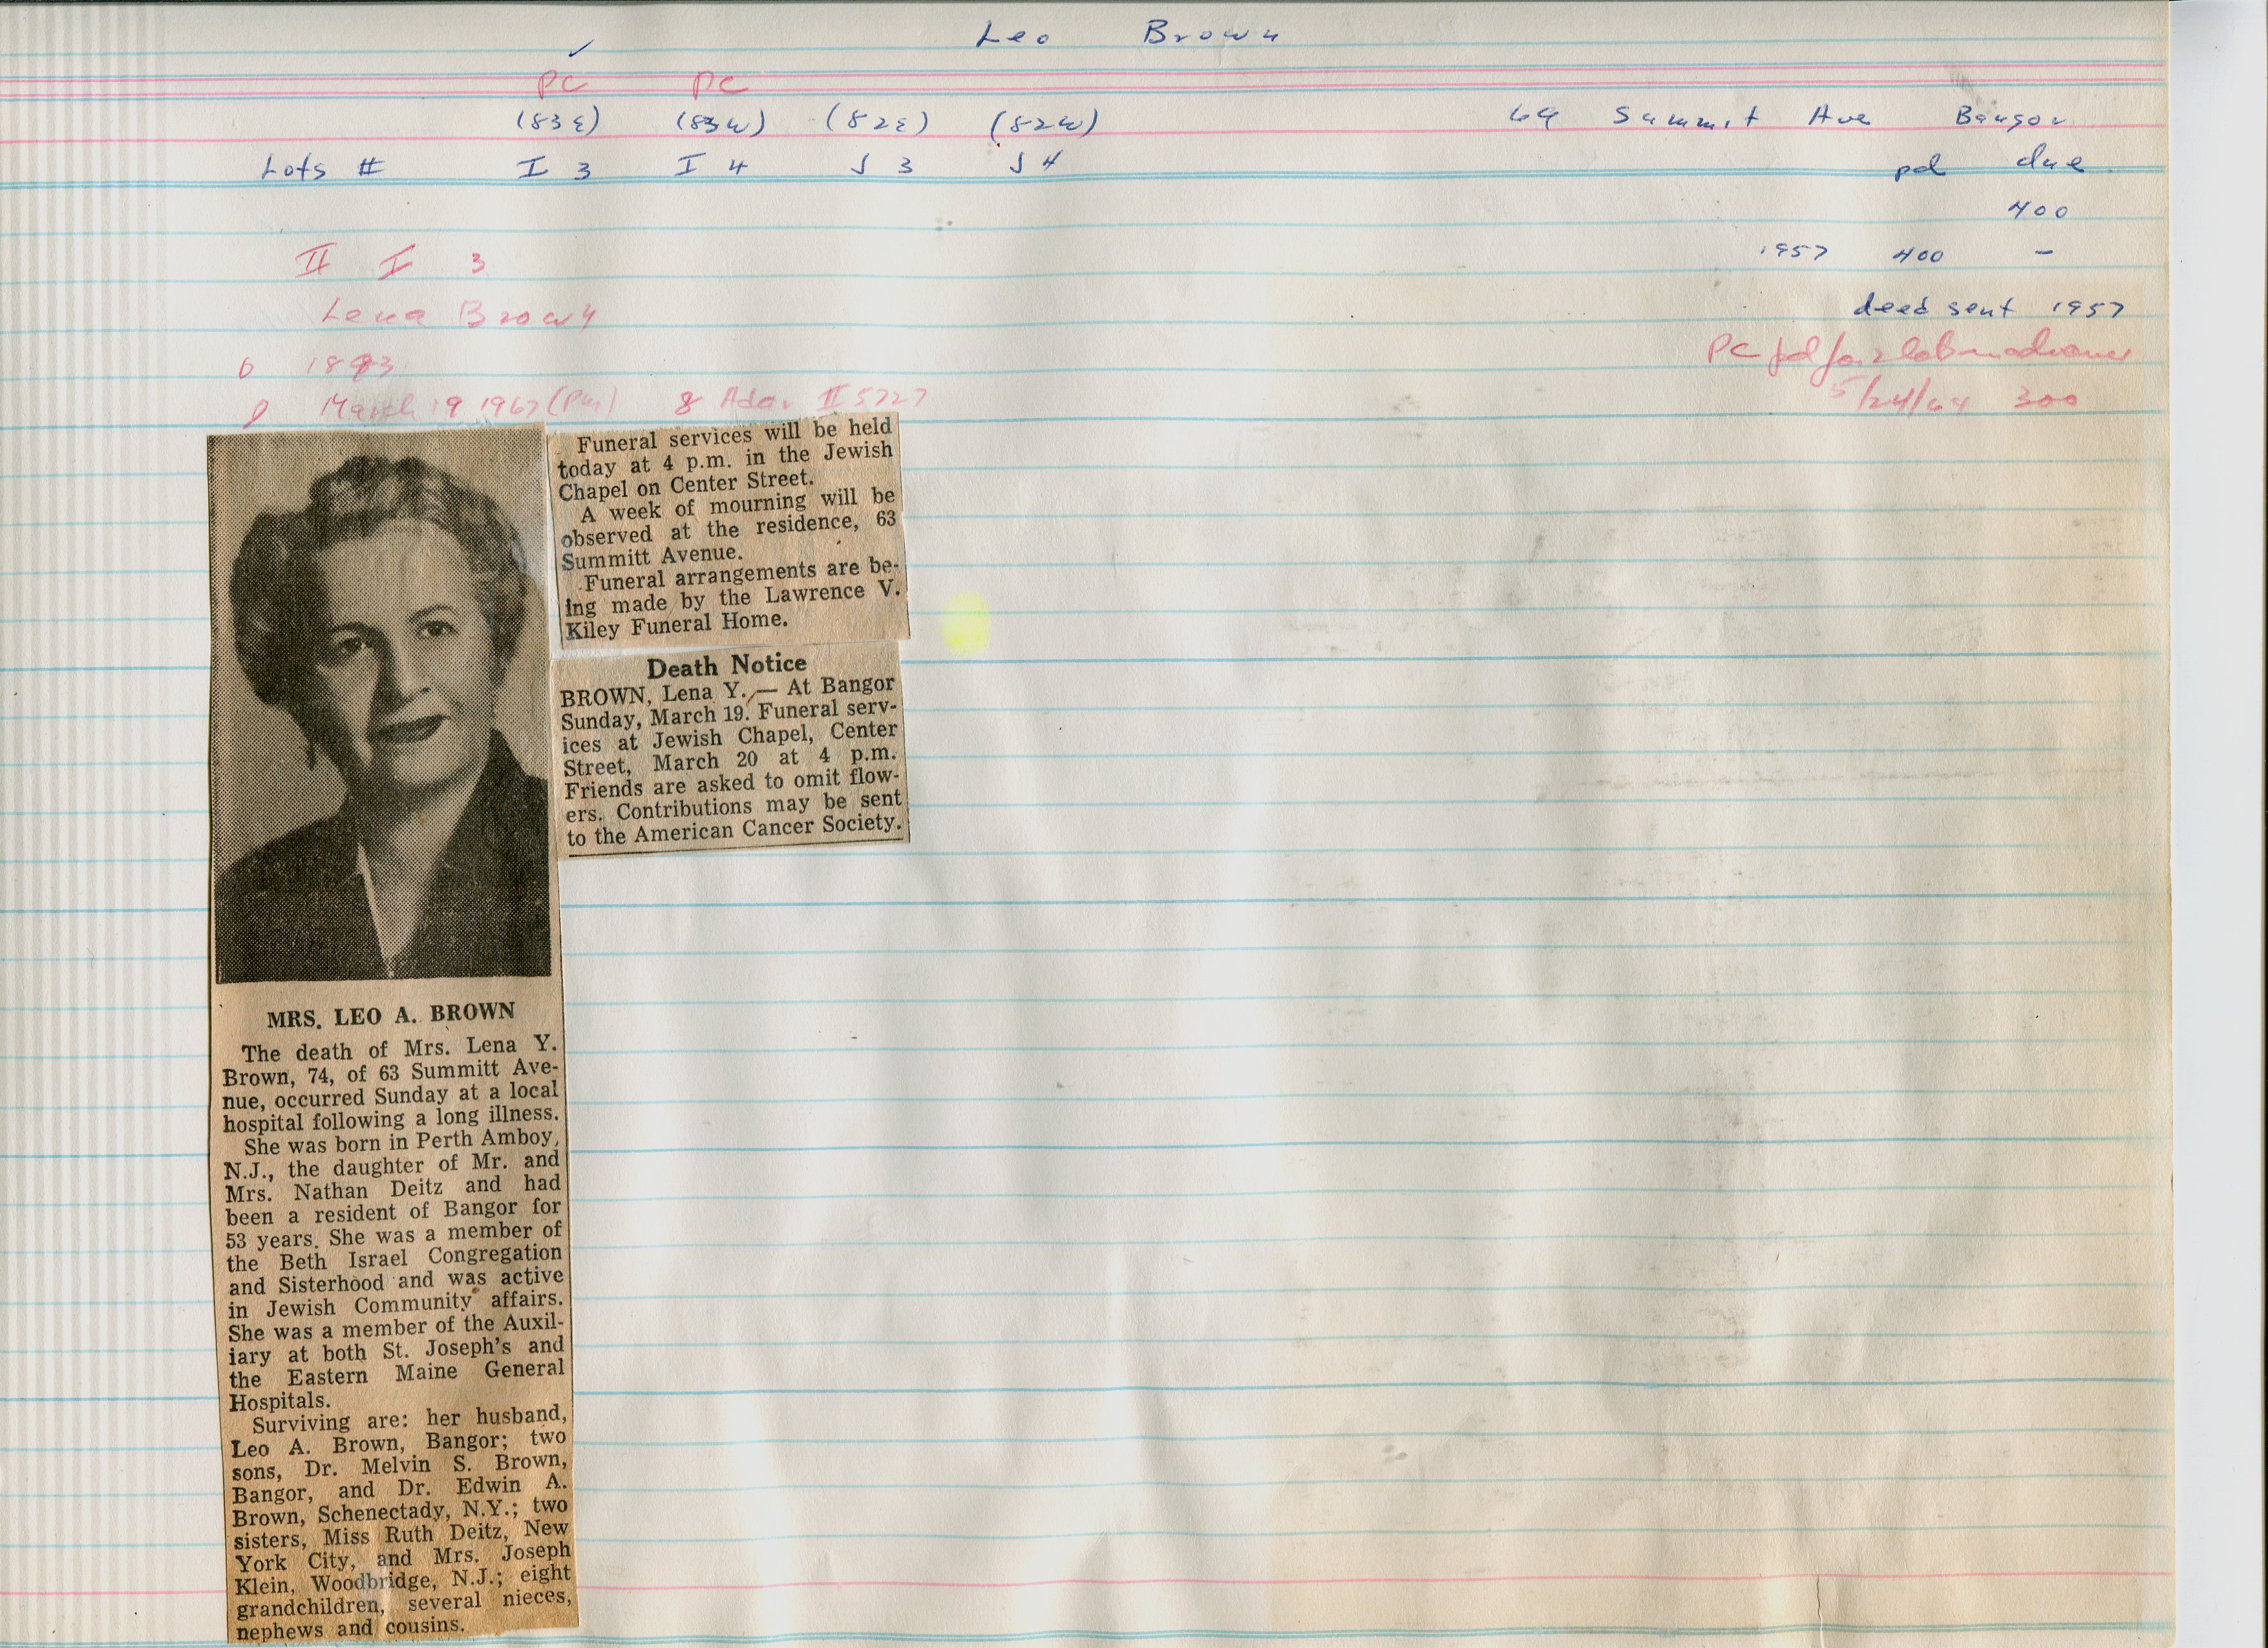 Leo Brown
PC PC
(83E) (83W) (82E) (82W) 69 Summit Ave Bangor
Lots # I 3 I 4 J 3 J 4 pd due
400
II I 3 1957 400 -
Lena Brown deed sent 1957
b 1893 PC pd for 2 lots in advance
D March 19 1967 (PM) 8 Adar II 5727 5/24/64 300
Funeral services will be held
today at 4 p.m. in the Jewish
Chapel on Center Street.
A week of mourning will be
observed at the residence, 63
Summitt Avenue.
Funeral arrangements are be-
ing made by the Lawrence V.
Kiley Funeral Home.
Death Notice
BROWN, Lena Y.— At Bangor
Sunday, March 19. Funeral serv-
ices at Jewish Chapel, Center
Street, March 20 at 4 p.m.
Friends are asked to omit flow-
ers. Contributions may be sent
to the American Cancer Society.
MRS. LEO A. BROWN
The death of Mrs. Lena Y.
Brown, 74, of 63 Summitt Ave-
nue, occurred Sunday at a local
hospital following a long illness.
She was born in Perth Amboy,
N.J., the daughter of Mr. and
Mrs. Nathan Deitz and had
been a resident of Bangor for
53 years. She was a member of
the Beth Israel Congregation
and Sisterhood and was active
in Jewish Community affairs.
She was a member of the Auxil-
iary at both St. Joseph's and
the Eastern Maine General
Hospitals.
Surviving are: her husband,
Leo A. Brown, Bangor; two
sons, Dr. Melvin S. Brown,
Bangor, and Dr. Edwin A.
Brown, Schenectady, N.Y.; two
sisters, Miss Ruth Deitz, New
York City, and Mrs. Joseph
Klein, Woodbridge, N.J.; eight
grandchildren, several nieces,
nephews and cousins.